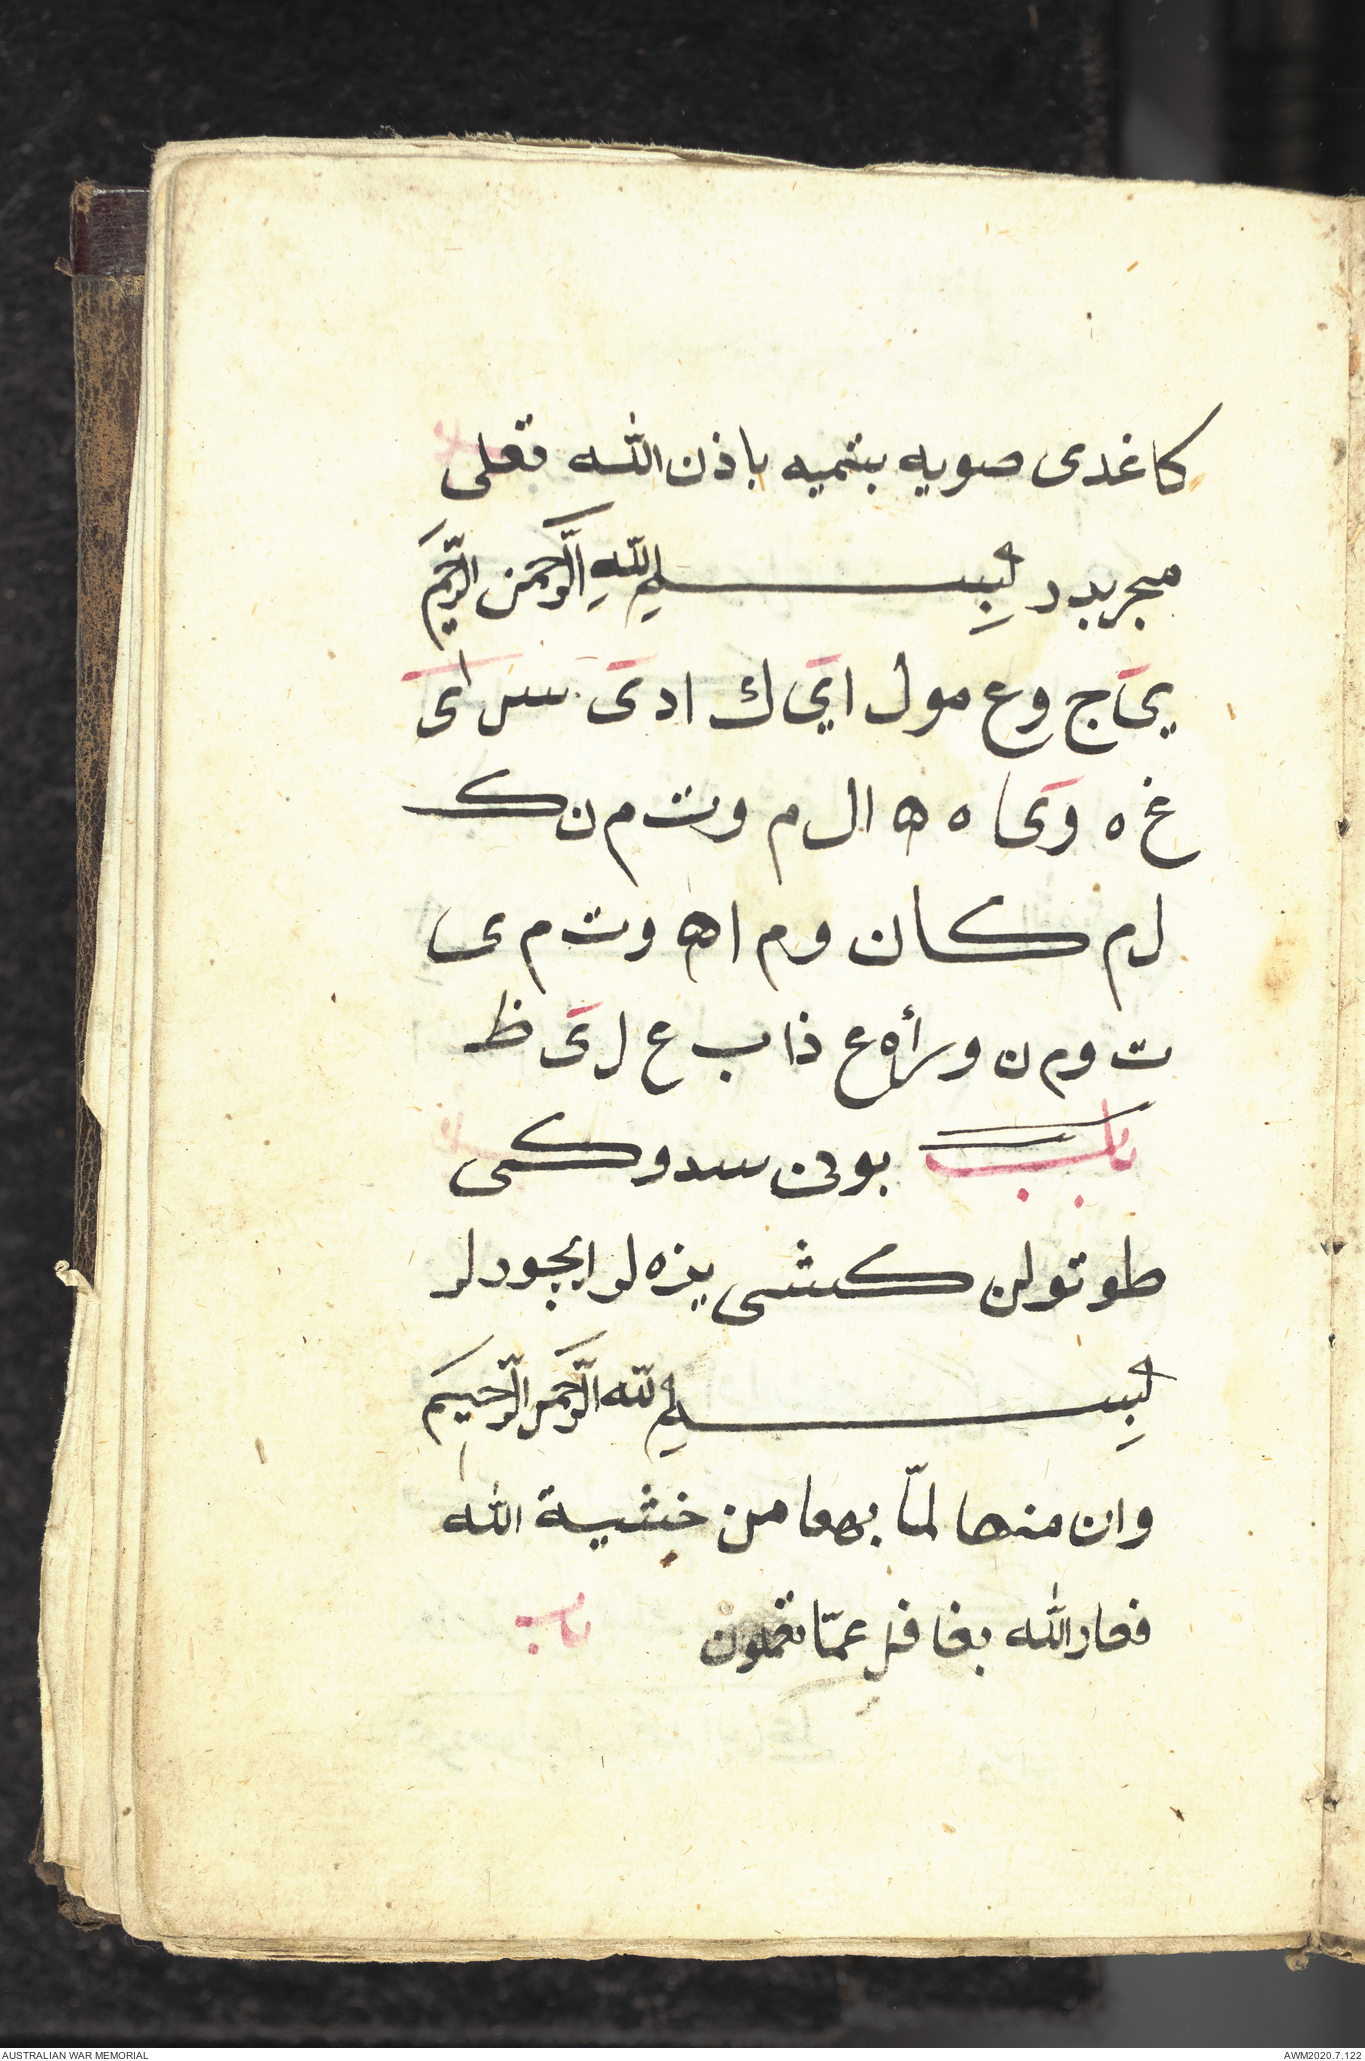 كاغدى صويه بتميه باذن الله تعلى
مجربدر بسم الله الرحمن الرحيم
ىَ ج وع مول اىَ ك ادىَ س اىَ
غ ه وىَ اه ه ال م وت م ن ك
ل م كان وم اه وت م ى
ت وم ن ورأه ع ذاب ع لىَ ظ
باب بودن سدوكى
طوتولن كشى يزه لر ايچودلر
بسم الله الرحمن الرحيم
وان منها لمّا بهعا من خشية الله
الله بغافل عمّا تعملون باب
AUSTRALIAN WAR MEMORIAL AWM2020.7.122